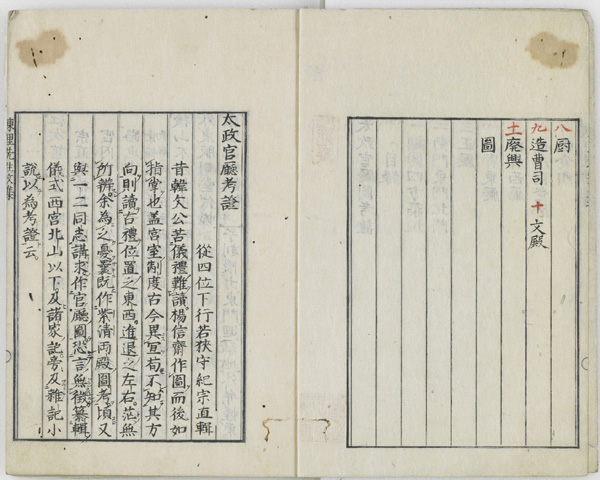 八 厨
九 造曹司 十 文殿
十一 廃興
圖
太政官廳考證
從四位下行若狭守紀宗直輯
昔韓文公苦儀禮難讀楊信齋作圖而後如
指掌也蓋宮室制度古今異宜苟不知其方
向則讀古禮位置之東西進退之左右茫無
所辨余為之憂曩既作紫清両殿圖考頃又
與一二同志講求作官廳圖恐言無徴纂輯
儀式西宮北山以下及諸家記旁及雜記小
説以為考證云